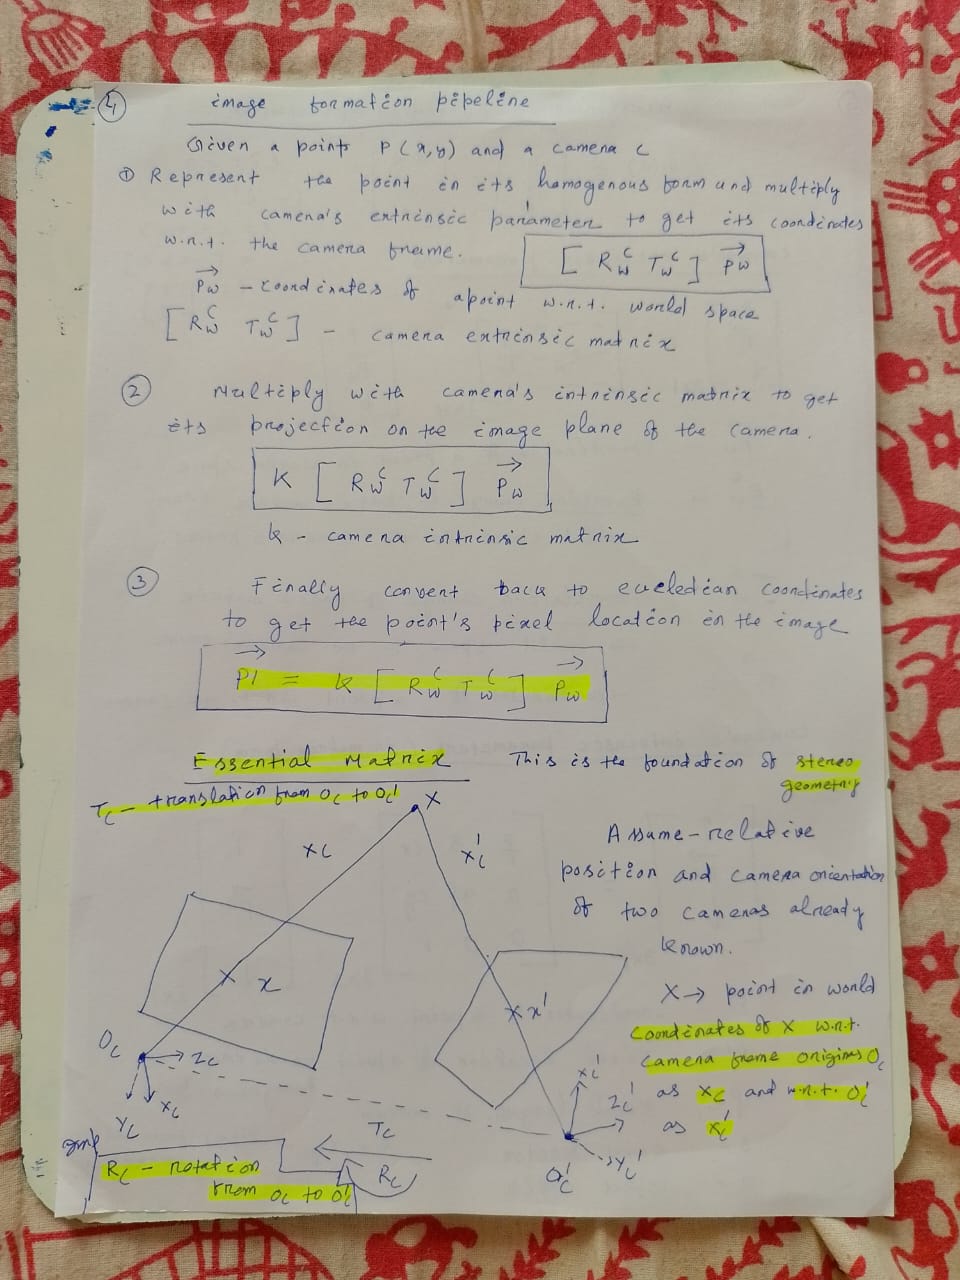 4 image formation pipeline
Given a point P(x,y) and a camera C
① Represent the point in its homogenous form and multiply
with camera's extrinsic parameter to get its coordinates
w.r.t. the camera frame. [ R_W^C T_W^C ] P_W
P_W - coordinates of a point w.r.t. world space
[ R_W^C T_W^C ] - camera extrinsic matrix
② Multiply with camera's intrinsic matrix to get
its projection on the image plane of the camera.
K [ R_W^C T_W^C ] P_W
K - camera intrinsic matrix
③ Finally convert back to eucledian coordinates
to get the point's pixel location in the image
P' = K [ R_W^C T_W^C ] P_W
Essential Matrix This is the foundation of stereo
geometry
T_C - translation from O_C to O_C'
X
X_C
X_C'
Assume - relative
position and camera orientation
of two cameras already
known.
X → point in world
coordinates of X w.r.t.
camera frame origins O_C
as X_C and w.r.t. O_C'
as X_C'
x
x'
O_C
Z_C
X_C
Y_C
X_C'
Z_C'
Y_C'
O_C'
T_C
R_C
imp
R_C - rotation
from O_C to O_C'